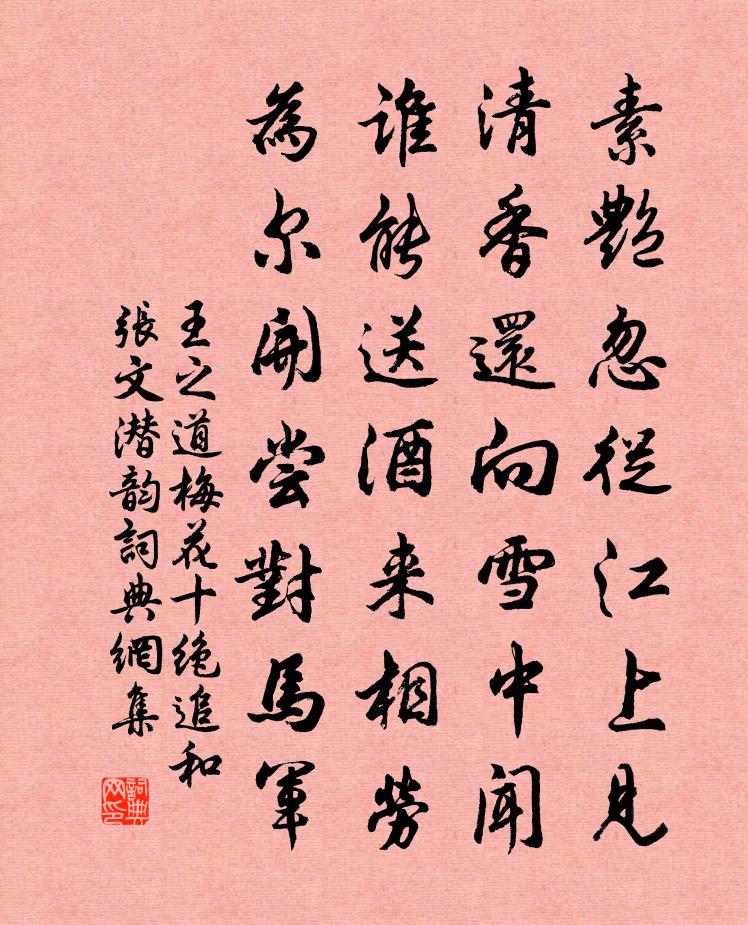 素艷忽從江上見
清香還向雪中聞
誰能送酒来相勞
為尔開尝對馬軍
王之道梅花十絶追和
張文潜韵詞典網集
詞典网印